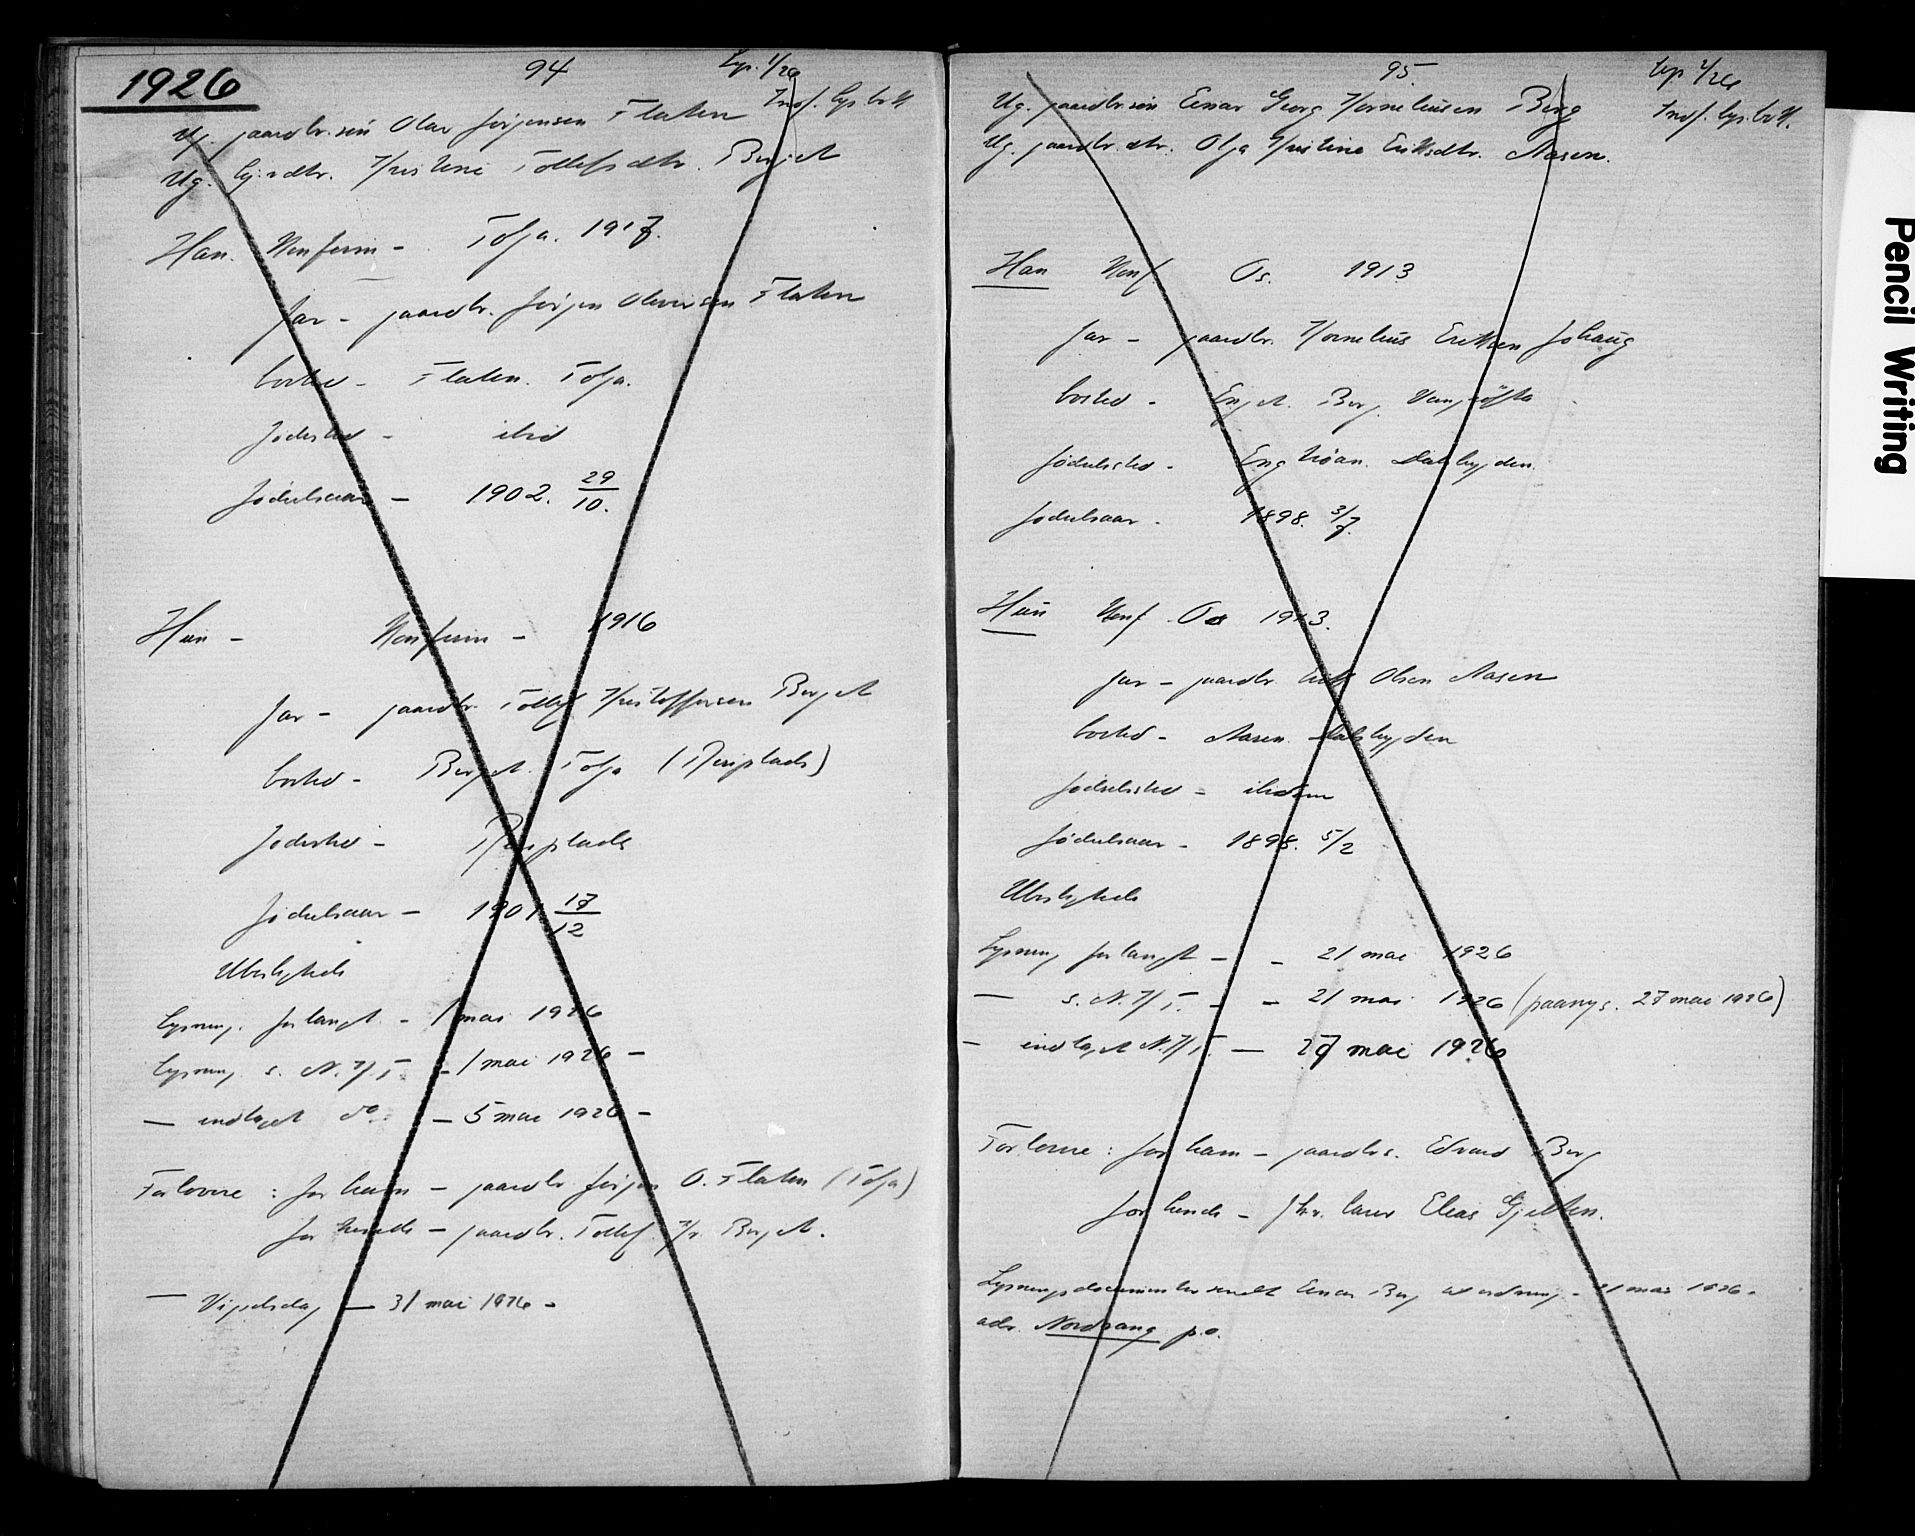 1926
94
Lys. 1/26
Indf. lys.prot
Ug. gaardbr.søn Olav Jørgensen Flaten
Ug. dtr. Kristine Tollefsdtr. Berget
Han. Konfirm – Tolga. 1917.
far – gaardbr. Jørgen Olsen Flaten
bosted – Flaten. Tolga.
fødested – ibid
fødselsaar – 1902. 29/10.
Hun – Konfirm – 1916
far – gaardbr. Tollef Kristoffersen Berget
bosted – Berget. Tolga
fødested –
fødselsaar – 1901 17/12
Ubeslægtede
Lysning forlangt – 1 mai 1926
Lysning s. N.K.T. – 1 mai 1926 –
— indtaget do. – 5 mai 1926 –
Forlovere : for ham – gaardbr Jørgen O. Flaten (Tolga)
for hende – gaardbr. Tollef Kr. Berget.
— Vigselsdag — 31 mai 1926 –
95
Lys 2/26
Indf. lys.prot.
Ug. gaardbr.søn Einar Georg Korneliusen Berg
Ug. gaardbr.dtr. Olga Kristine Eriksdtr. Aasen.
Han Konf Os. 1913
far – gaardbr. Kornelius Eriksen Johaug
bosted – Enget. Berg. Vang
fødselssted – Dalsbygden.
fødselsaar – 1898. 3/7.
Hun Konf. Os 1913.
far – gaardbr. Erik Olsen Aasen
bosted – Aasen. Dalsbygden
fødselssted – ibidem
fødselsaar – 1898. 5/2
Ubeslægtede
Lysning forlangt – – 21 mai 1926
— s. N.K.T. – – 21 mai 1926 (paany s. 27 mai 1926)
– indtaget N.K.T. — 27 mai 1926
Forlovere : for ham – gaardbr. Edvard Berg
for hende – Elias Gjelten.
Lysningsdokumenter sendt Einar Berg til ordning – 21 mai 1926 –
adr. Nordvang p.o.
Pencil Writing